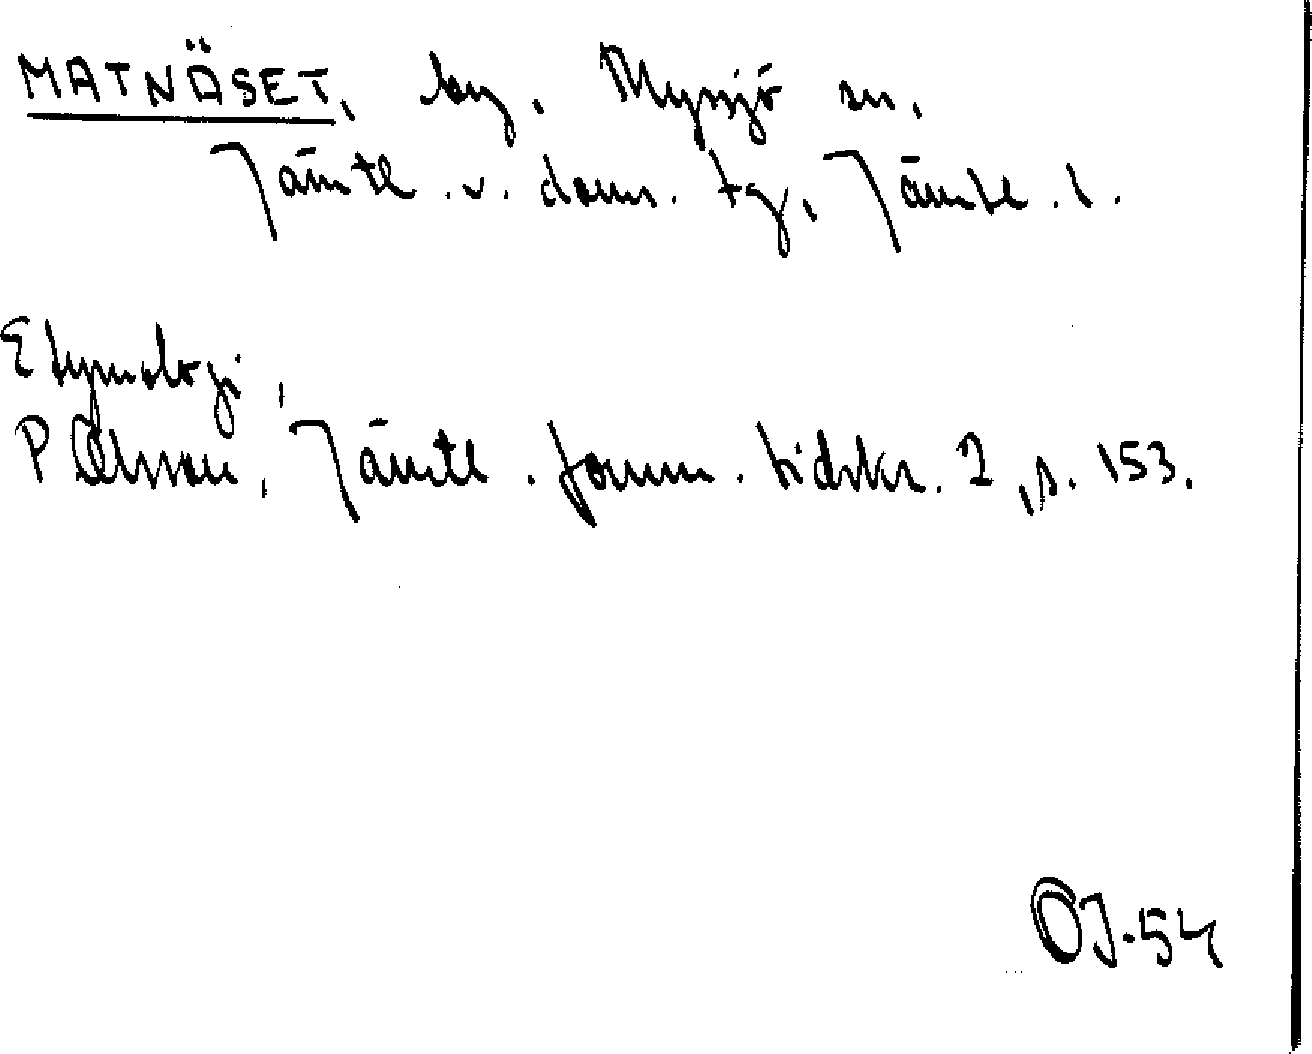 MATNÄSET, by, Myssjö sn,
Jämtl. v. doms. tg, Jämtl. l.
Etymologi,
P Olsson, Jämtl. fornm. tidskr. 2, s. 153.
OJ-54